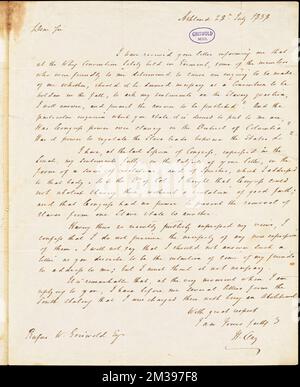 Ashland 28th July 1839
GRISWOLD
MSS.
Dear Sir
I have received your letter informing me that
at the Whig Convention lately held in Vermont, some of the members
who were friendly to me determined to cause an enquiry to be made
of me whether, should it be deemed necessary at a Convention to be
holden in the fall, to ask my sentiments on the Slavery question,
I will answer, and permit the answer to be published; And the
particular enquiries which you state it is desired to put to me are,
Has Congress power over slavery in the District of Columbia
Has it power to regulate the Slave trade between the States
I have, at the last Session of Congress, expressed in the
Senate, my sentiments fully on the subject of your letter, in the
form of a
to that body.
not abolish Slavery without a violation of good faith;
and that Congress had no power to prevent the removal of
Slaves from one Slave state to another.
Having thus so recently publicly expressed my views, I
confess that I do not perceive the necessity of any new expression
of them. I will not say that I should not answer such a
letter as you describe to be the intention of some of my friends
to address to me; but I must think it not necessary.
It is remarkable that, at the very moment when I am
replying to you, I have before me several letters from the
South stating that I am charged there with being an Abolitionist
With great respect
I am Yours faithfy
H. Clay
Rufus W. Griswold Esqr
alamy
Image ID: 2M397F8
www.alamy.com